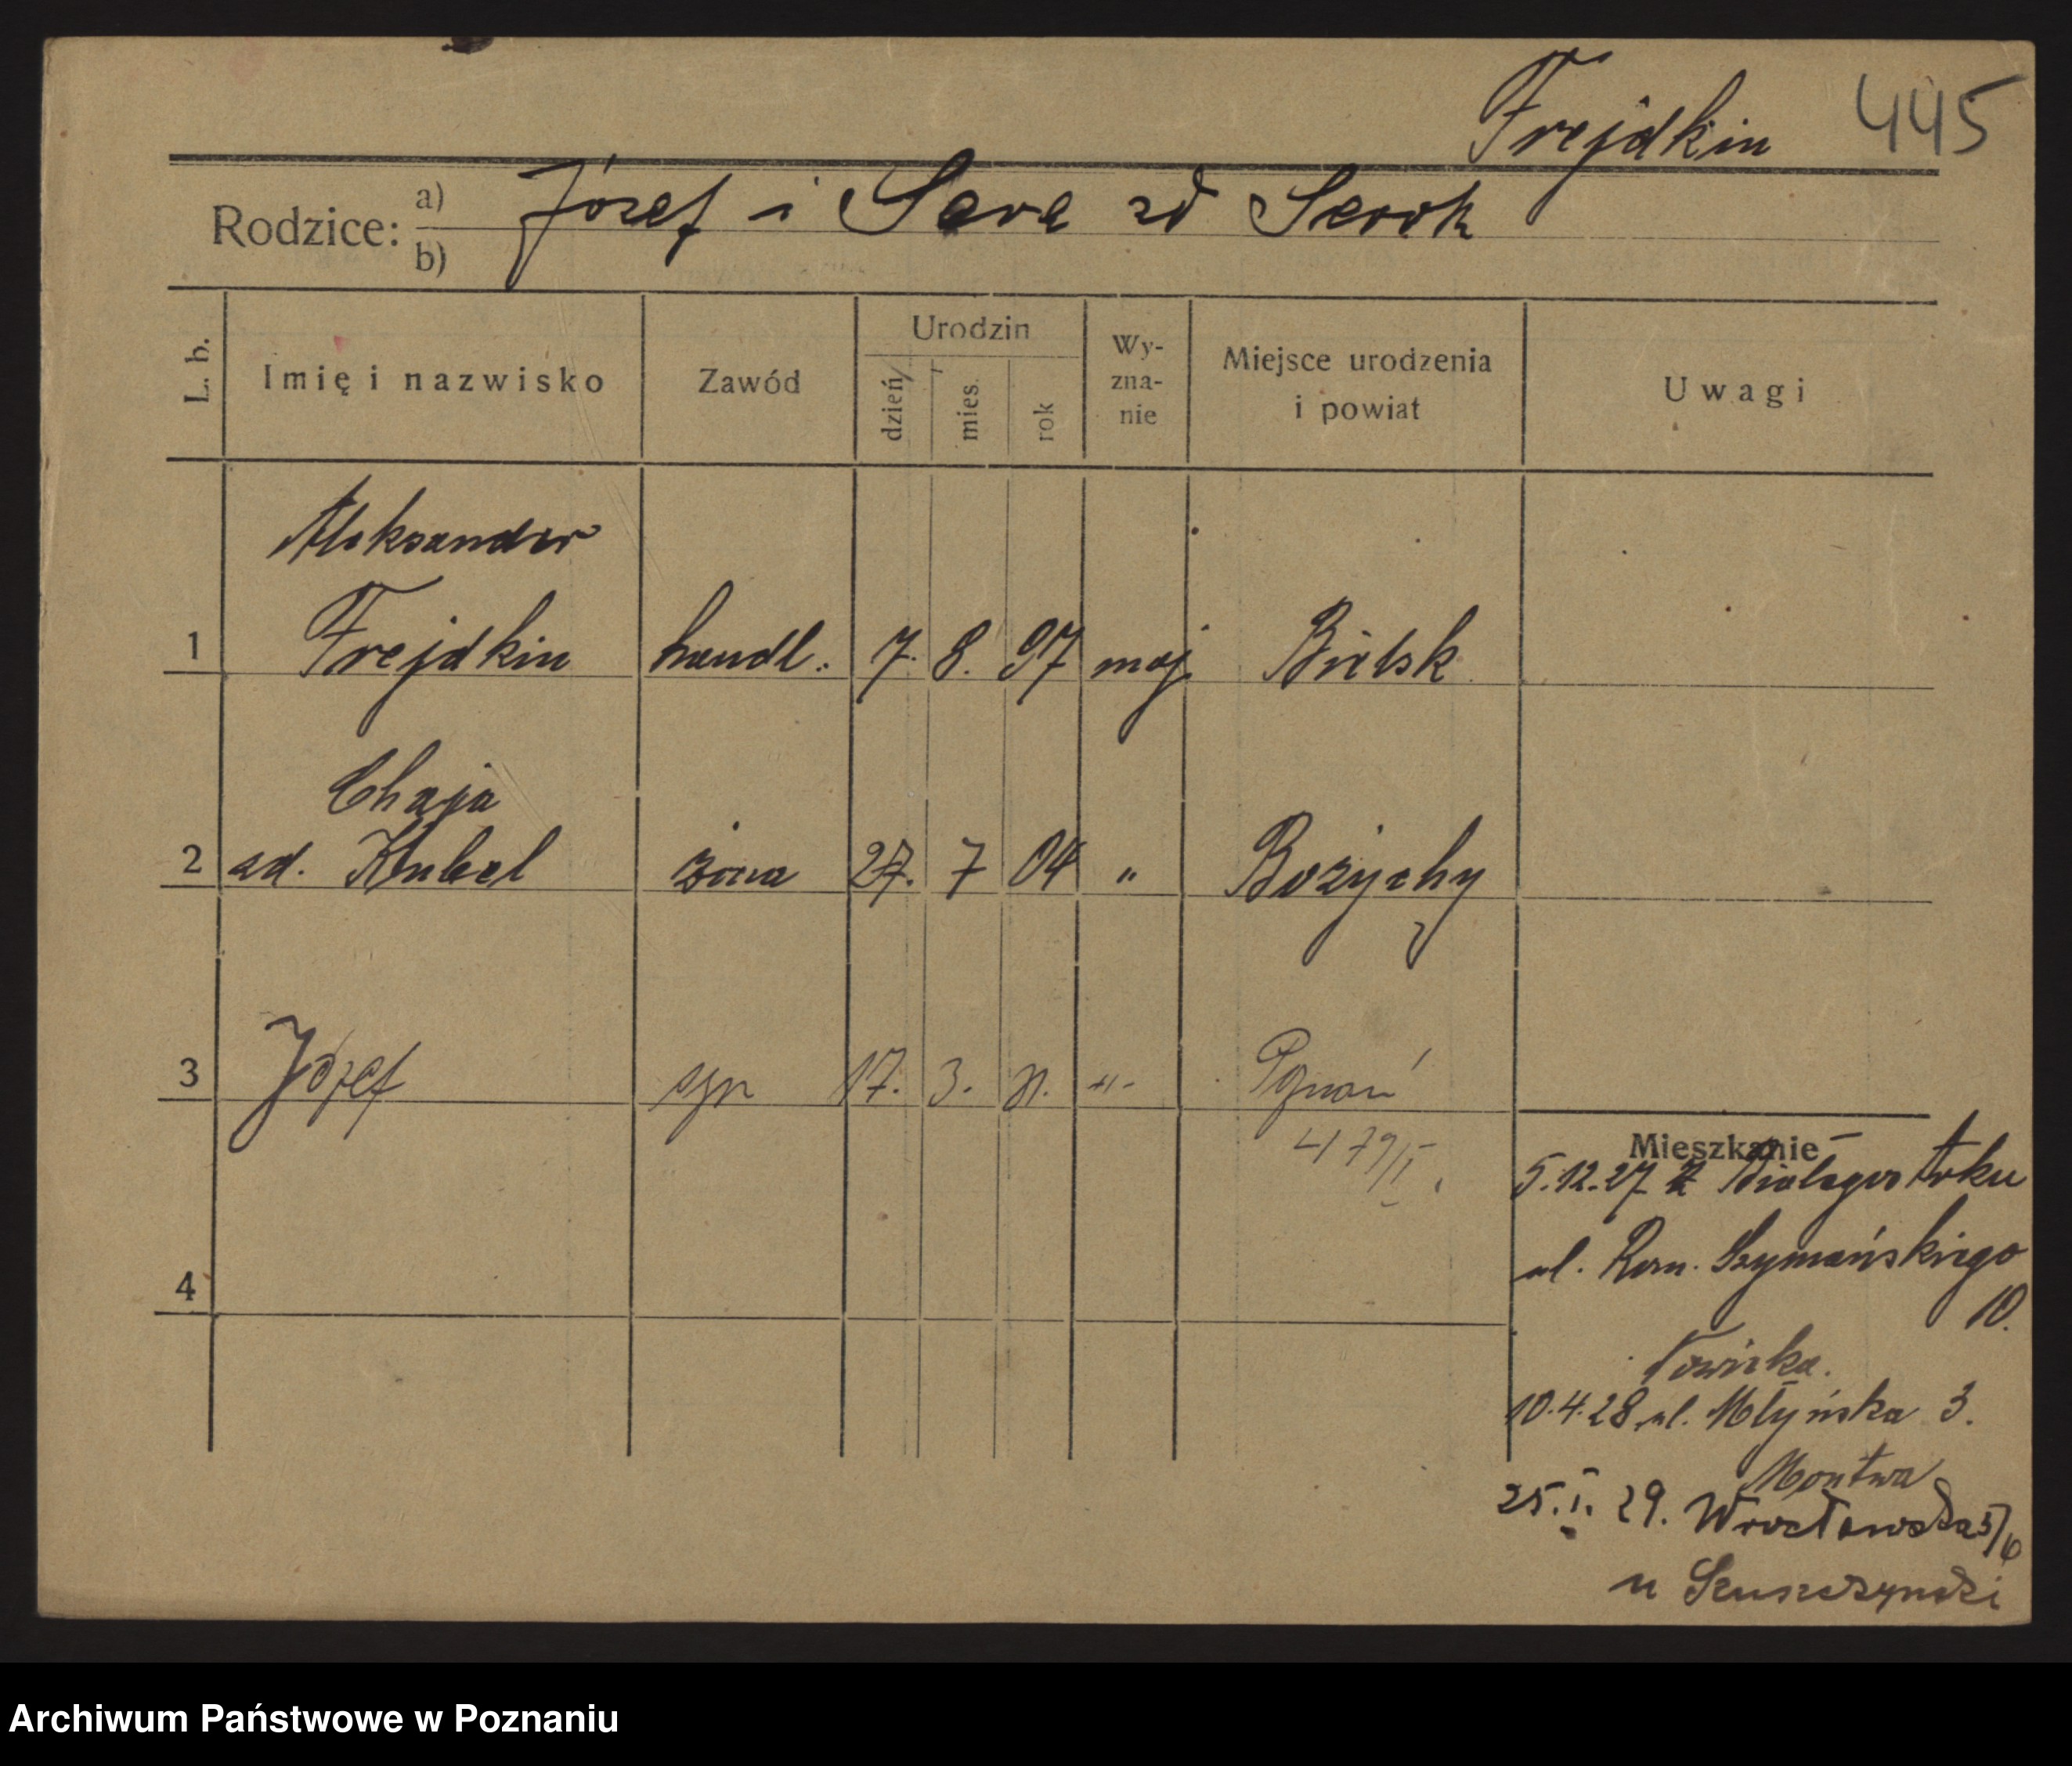 Frejdkin 445
Rodzice: a) b) Józef i Sara zd Serok
L. b. Imię i nazwisko Zawód Urodzin dzień mies. rok Wy-zna-nie Miejsce urodzenia i powiat Uwagi
Aleksander
1 Frejdkin handl. 7. 8. 97 moj Bielsk
Chaja
2 zd. Knubel żona 27. 7 04 " Bożychy
3 Józef syn 17. 3. 31. -"- Poznań
479/I
4
Mieszkanie
5.12.27 z Białegostoku
ul. Rom. Szymańskiego
10.
Nowicka.
10.4.28 ul. Młyńska 3.
Montwa
25.I. 29. Wrocławska 5/6
u
Archiwum Państwowe w Poznaniu